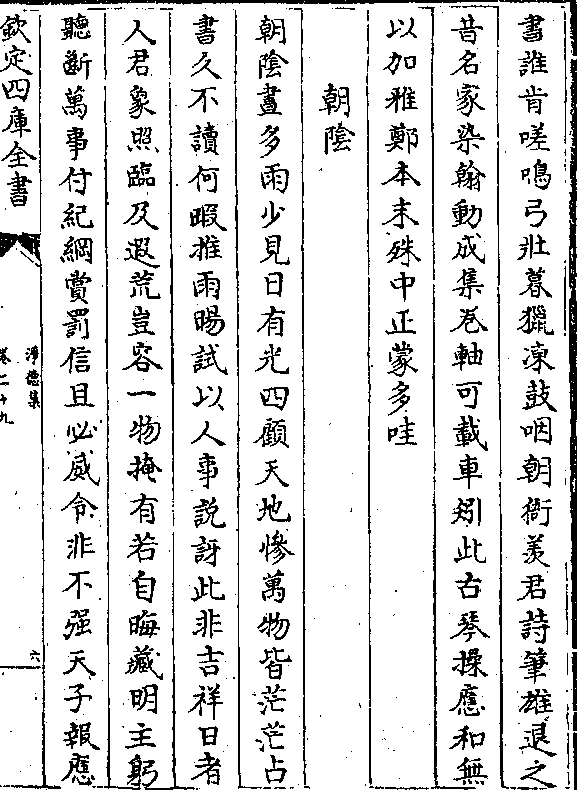 書誰肯嗟鳴弓壯暮獵凍鼓咽朝衙羨君詩筆雄退之
昔名家染翰動成集卷軸可載車矧此古琴操應和無
以加雅鄭本末殊中正蒙多哇
朝陰
朝陰晝多雨少見日有光四顧天地慘萬物皆茫茫占
書久不讀何暇推雨暘試以人事說訝此非吉祥日者
人君象照臨及遐荒豈容一物掩有若自晦藏明主躬
聽斷萬事付紀綱賞罰信且必威令非不强天子報應
欽定四庫全書
淨德集
卷二十九
六